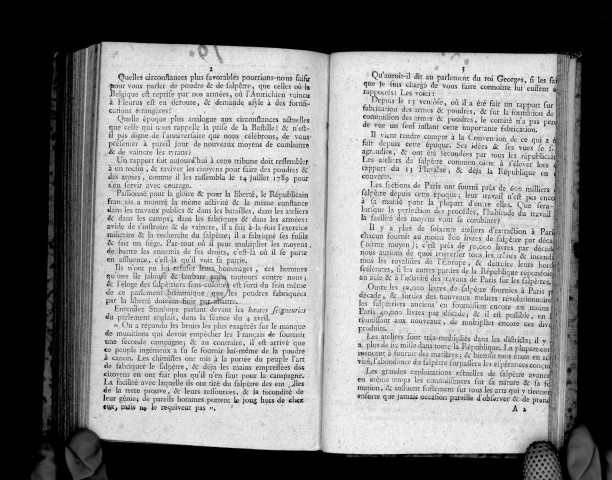 2
Quelles circonstances plus favorables pourrions-nous saisir
pour vous parler de poudre & de salpêtre, que celles où la
Belgique est reprise par nos armées, où l'Autrichien vaincu
à Fleurus est en déroute, & demande asyle à des fortifi-
cations étrangères!
Quelle époque plus analogue aux circonstances actuelles
que celle qui nous rappelle la prise de la Bastille! & n'est-
il pas digne de l'anniversaire que nous célébrons, de vous
présenter à pareil jour de nouveaux moyens de combattre
& de vaincre les tyrans!
Un rapport fait aujourd'hui à cette tribune doit ressembler
à un tocsin, & raviver les moyens pour faire des poudres &
des armes, comme il les rassembla le 14 juillet 1789 pour
s'en servir avec courage.
Passionné pour la gloire & pour la liberté, le Républicain
français a montré la même activité & la même constance
dans les travaux publics & dans les batailles, dans les ateliers
& dans les camps, dans les fabriques & dans les armées:
avide de s'instruire & de vaincre, il a fait à-la-fois l'exercice
militaire & la recherche du salpêtre; il a fabriqué ses fusils
& fait un siége. Par-tout où il peut multiplier les moyens
de battre les ennemis de ses droits, c'est-là où il se porte
en affluence, c'est-là qu'il voit la patrie.
Ils n'ont pu lui refuser leurs hommages, ces hommes
qu'une île jalouse & barbare arma toujours contre nous;
& l'éloge des salpêtriers sans-culottes est sorti du sein même
de ce parlement britannique que les poudres fabriquées
par la liberté doivent finir par
Entendez Stanhope parlant devant les hautes seigneuries
du parlement anglais, dans la séance du 4 avril.
« On a répandu les bruits les plus exagérés sur le manque
de munitions qui devoit empêcher les Français de soutenir
une seconde campagne; & au contraire, il est arrivé que
ce peuple ingénieux a su se fournir lui-même de la poudre
à canon. Les chimistes ont mis à la portée du peuple l'art
de fabriquer le salpêtre, & déjà les mains empressées des
citoyens en ont fait plus qu'il n'en faut pour la campagne.
La facilité avec laquelle ils ont tiré du salpêtre des entrailles
de la terre prouve, & leurs ressources, & la fécondité de
leur génie; de pareils hommes portent le joug hors de chez
eux, mais ne le reçoivent pas ».
3
Qu'auroit-il dit au parlement du roi Georges, si les fai
que je suis chargé de vous faire connoître lui eussent é
rapportés! Les voici:
Depuis le 13 ventôse, où il a été fait un rapport sur
fabrication des armes & poudres, & sur la formation de
commission des armes & poudres, le comité n'a pas perd
de vue un seul instant cette importante fabrication.
Il vient rendre compte à la Convention de ce qui a é
fait depuis cette époque. Ses idées & ses vues se s
agrandies, & ont été secondées par tous les républicai
Les ateliers de salpêtre commençoient à s'élever lors
rapport du 13 & déjà la République en
couverte.
Les sections de Paris ont fourni près de 600 milliers
salpêtre depuis cette époque; leur travail n'est pas enco
à sa moitié pour la plupart d'entre elles. Que sera-
lorsque la perfection des procédés, l'habitude du travail
la facilité des moyens vont se combiner?
Il y a plus de soixante ateliers d'extraction à Paris
chacun fournit au moins 500 livres de salpêtre par décad
(terme moyen); c'est près de 30,000 livres par décade
nous aurions de quoi pulvériser tous les trônes & incendi
tous les restes de l'Europe, & détruire leurs hord
scélérates, si les autres parties de la République répondoie
au zèle & à l'activité des travaux de Paris sur les salpêtres.
Outre les 30,000 livres de salpêtre fournies à Paris p
décade, & sorties des nouveaux ateliers révolutionnaire
les salpêtriers anciens en fournissent encore au moins
Paris 40,000 livres par décade; & il est possible, en
réunissant aux nouveaux, de multiplier encore ces div
produits.
Les ateliers sont très-multipliés dans les districts; il y
a plus de six mille dans toute la République. La plupart com
mencent à fournir des matières; & bientôt tous étant en acti
vité, l'abondance du salpêtre surpassera les espérances conçues.
Les grandes exploitations actuelles de salpêtre avance
en même temps les connoissances sur sa nature & sa fo
mation, & influent fortement sur tous les arts qui y tiennen
ensorte que jamais occasion pareille d'observer & de prend
A 2